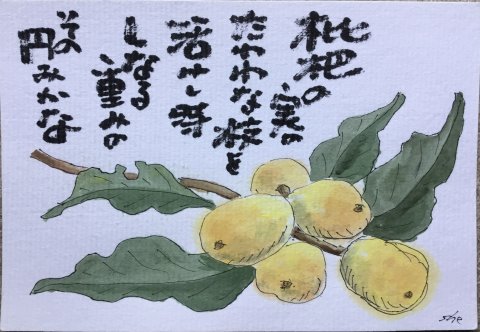 枇杷の実の
たわわな枝を
活けし時
しなる重みの
その円みかな
she